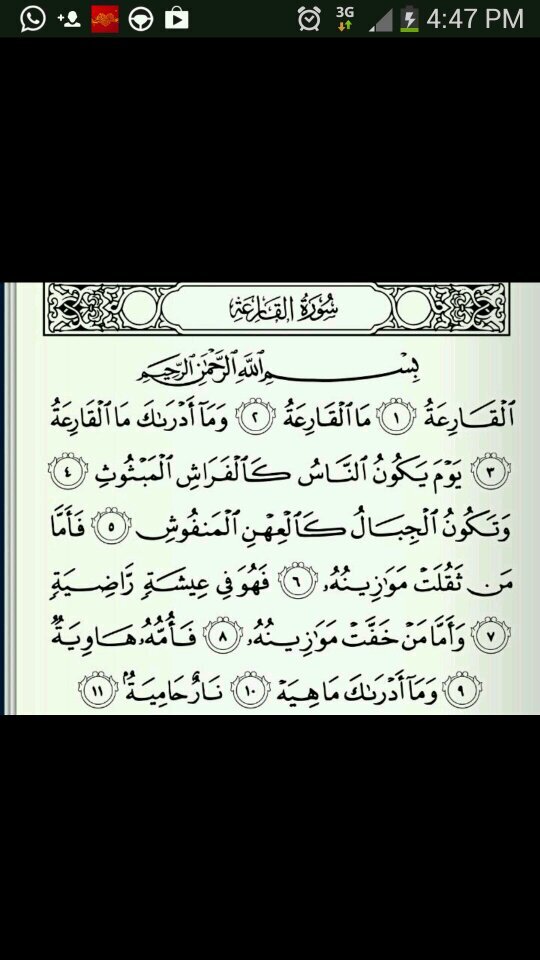 3G 4:47 PM
سُورَةُ القَارِعَةِ
بِسْمِ ٱللَّهِ ٱلرَّحْمَٰنِ ٱلرَّحِيمِ
ٱلْقَارِعَةُ ١ مَا ٱلْقَارِعَةُ ٢ وَمَآ أَدْرَىٰكَ مَا ٱلْقَارِعَةُ
٣ يَوْمَ يَكُونُ ٱلنَّاسُ كَٱلْفَرَاشِ ٱلْمَبْثُوثِ ٤
وَتَكُونُ ٱلْجِبَالُ كَٱلْعِهْنِ ٱلْمَنفُوشِ ٥ فَأَمَّا
مَن ثَقُلَتْ مَوَٰزِينُهُۥ ٦ فَهُوَ فِى عِيشَةٍ رَّاضِيَةٍ
٧ وَأَمَّا مَنْ خَفَّتْ مَوَٰزِينُهُۥ ٨ فَأُمُّهُۥ هَاوِيَةٌ
٩ وَمَآ أَدْرَىٰكَ مَا هِيَهْ ١٠ نَارٌ حَامِيَةٌۢ ١١